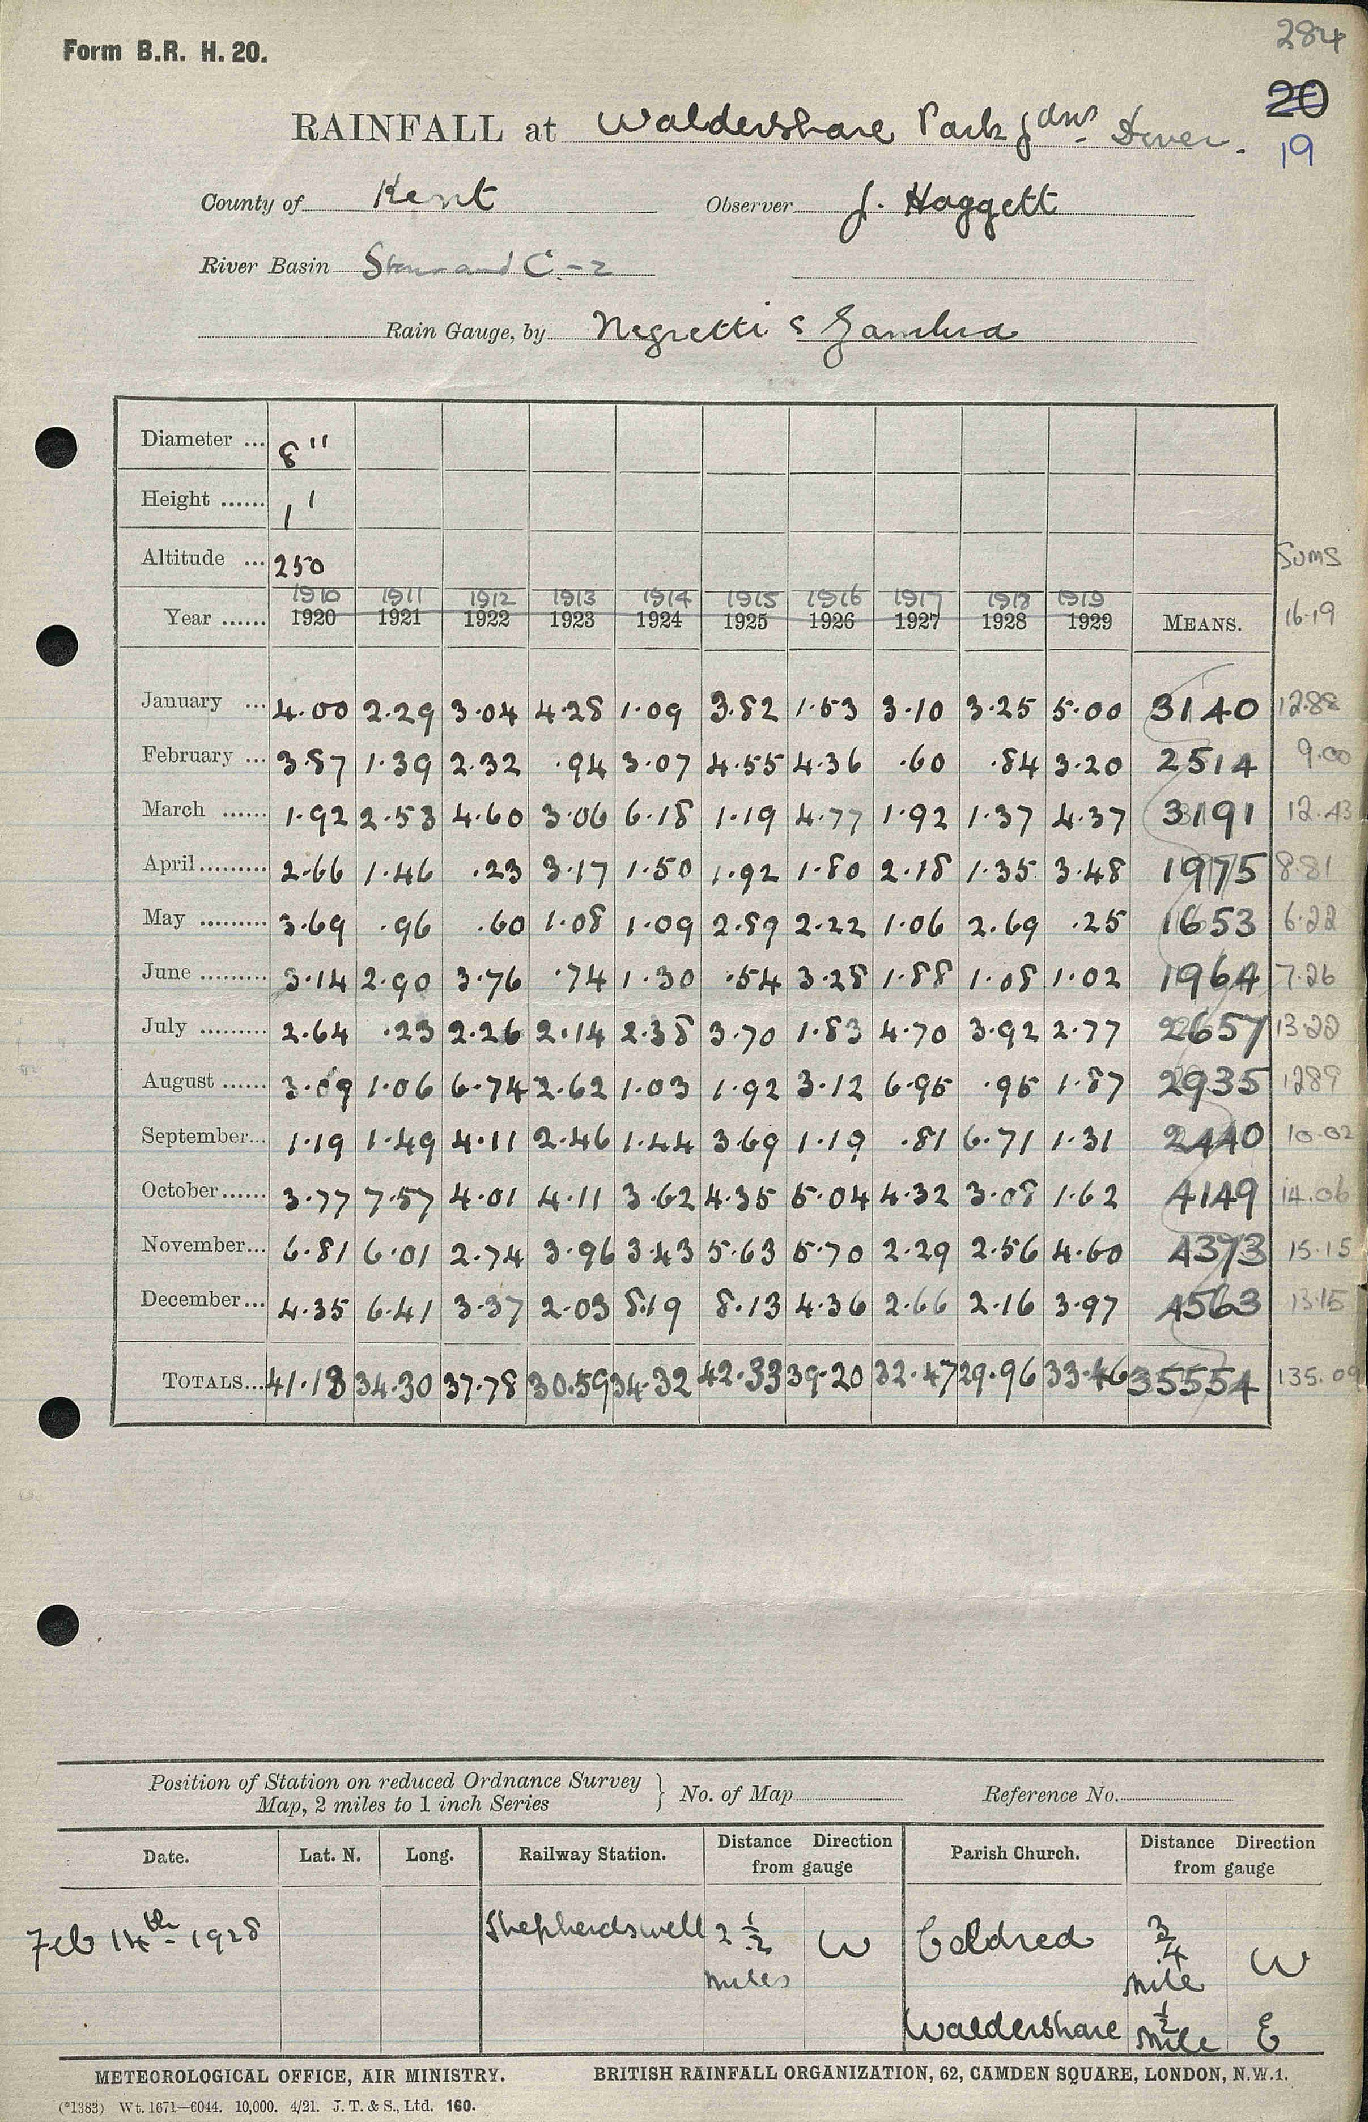 284
Form B.R. H. 20.
20
19
RAINFALL at Waldershare Park Gdns Dover.
County of Kent Observer J. Haggett
River Basin Stour and C. - 2
Rain Gauge, by Negretti & Zambra
Diameter ... 8"
Height ...... 1'
Altitude ... 250
Sums
1910 1911 1912 1913 1914 1915 1916 1917 1918 1919
Year ...... 1920 1921 1922 1923 1924 1925 1926 1927 1928 1929 MEANS. 16-19
January ... 4.00 2.29 3.04 4.28 1.09 3.82 1.53 3.10 3.25 5.00 3140 12.88
February ... 3.87 1.39 2.32 .94 3.07 4.55 4.36 .60 .84 3.20 2514 9.00
March ...... 1.92 2.53 4.60 3.06 6.18 1.19 4.77 1.92 1.37 4.37 3191 12.43
April ......... 2.66 1.46 .23 3.17 1.50 1.92 1.80 2.18 1.35 3.48 1975 8.81
May ......... 3.69 .96 .60 1.08 1.09 2.89 2.22 1.06 2.69 .25 1653 6.22
June ......... 3.14 2.90 3.76 .74 1.30 .54 3.28 1.88 1.08 1.02 1964 7.26
July ......... 2.64 .23 2.26 2.14 2.38 3.70 1.83 4.70 3.92 2.77 2657 13.22
August ...... 3.09 1.06 6.74 2.62 1.03 1.92 3.12 6.95 .95 1.87 2935 1289
September... 1.19 1.49 4.11 2.46 1.44 3.69 1.19 .81 6.71 1.31 2440 10.02
October...... 3.77 7.57 4.01 4.11 3.62 4.35 5.04 4.32 3.08 1.62 4149 14.06
November... 6.81 6.01 2.74 3.96 3.43 5.63 5.70 2.29 2.56 4.60 4373 15.15
December... 4.35 6.41 3.37 2.03 8.19 8.13 4.36 2.66 2.16 3.97 4563 13.15
TOTALS... 41.13 34.30 37.78 30.59 34.32 42.33 39.20 32.47 29.96 33.46 35554 135.09
Position of Station on reduced Ordnance Survey Map, 2 miles to 1 inch Series } No. of Map Reference No.
Date. Lat. N. Long. Railway Station. Distance Direction from gauge Parish Church. Distance Direction from gauge
Feb 14th 1928 Shepherdswell 2 1/2 miles W Coldred 3/4 mile W
Waldershare 1/2 mile E
METEOROLOGICAL OFFICE, AIR MINISTRY. BRITISH RAINFALL ORGANIZATION, 62, CAMDEN SQUARE, LONDON, N.W.1.
(*1383) Wt. 1671—6044. 10,000. 4/21. J. T. & S., Ltd. 160.